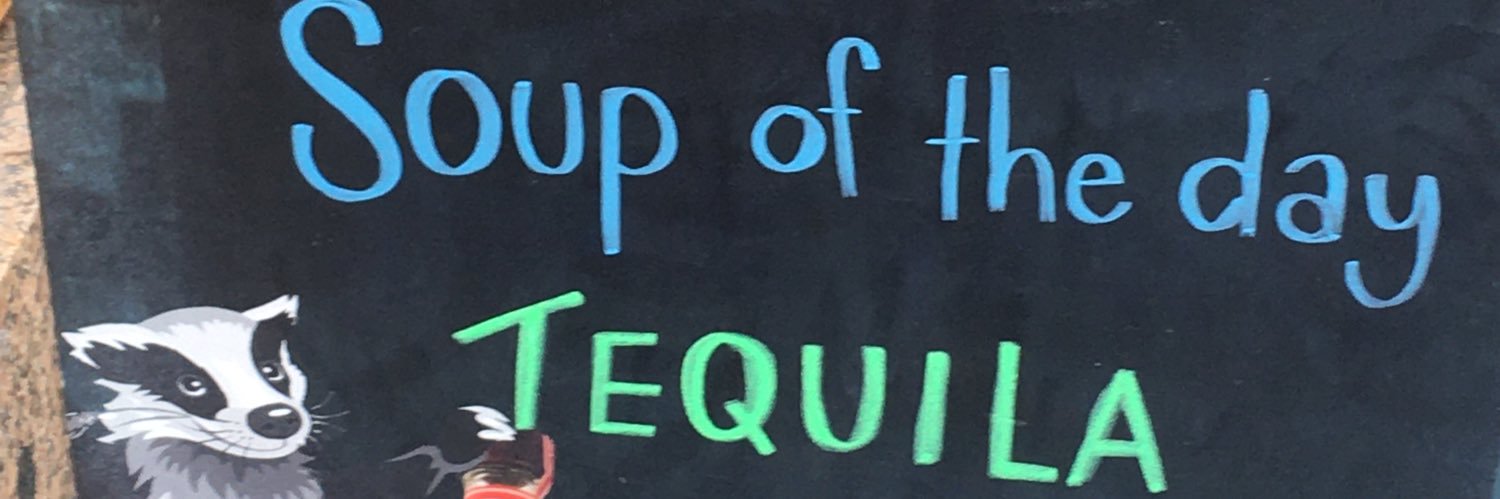 Soup of the day
TEQUILA